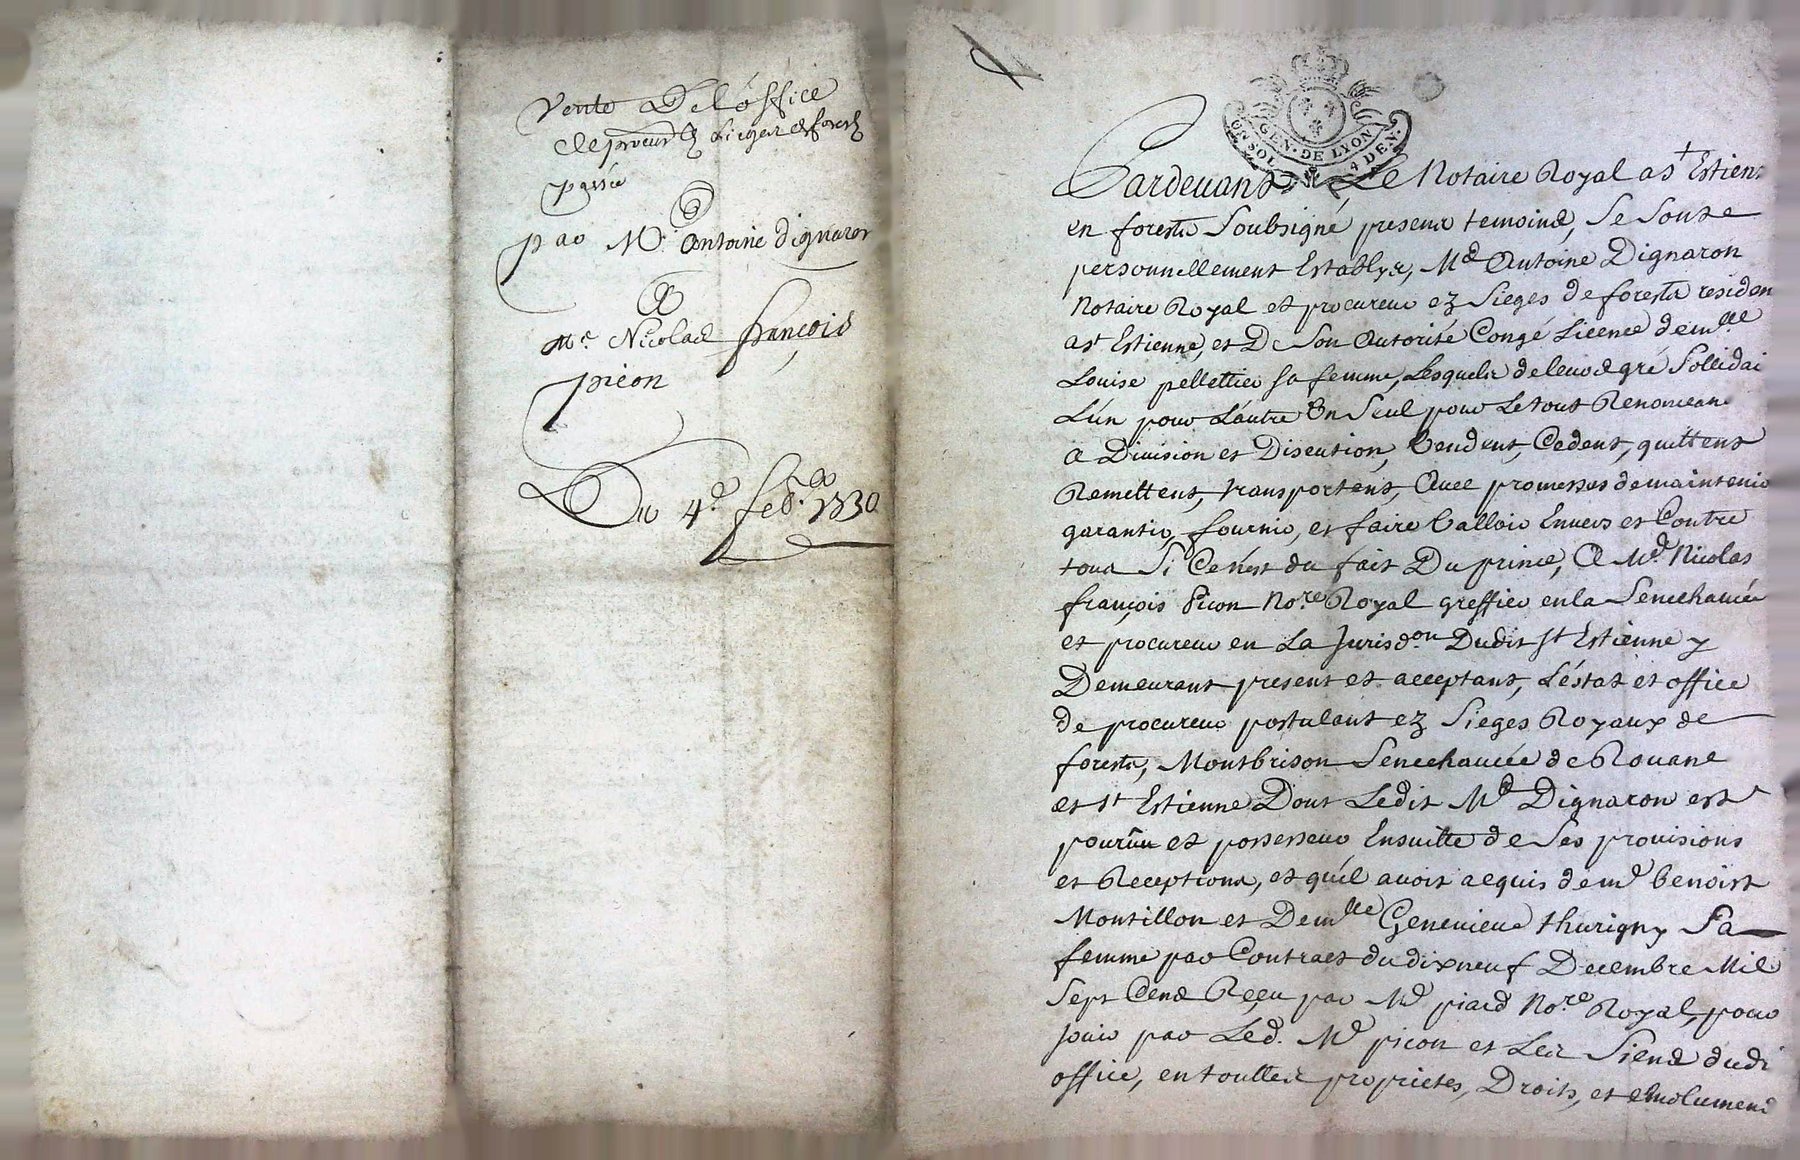 Vente De l'office
de procur ez sieges de forests
passée
par Me. Antoine Dignaron
A
Me. Nicolas françois
picon
Du 4e. feb.er 1730
GEN. DE LYON
UN SOL 4 DEN.
Pardevant Le Notaire Royal a St Estienne
en forests Soubsigné presens temoins, Se Sont
personnellement Establys, Me Antoine Dignaron
Notaire Royal et procureur ez Sieges de forests residen
a st Estienne, et De Son Autorité Congé Licence demlle
Louise pellettier sa femme, Lesquels de leur gré Sollidai
L'un pour L'autre Un Seul pour Le tout Renonceant
a Division et Discution, Vendent, Cedent, quittent
Remettent, transportent, Avec promesses de maintenir
garantir, fournir, et faire Valloir Envers et Contre
tous Si Ce n'est du fait Du prince, A Me. Nicolas
françois Picon No.re Royal greffier en la Senechaucée
et procureur en La Jurisd.on Dudit St Estienne y
Demeurant present et acceptant, L'éstat et office
de procureur postulant ez Sieges Royaux de
forests, Montbrison Senechaucée de Rouane
et St Estienne Dont Ledit Me Dignaron est
pourvu et possesseur Ensuitte de Ses provisions
et Receptions, et qu'il avoit acquis de me benoist
Montillon et Demlle Genevieve thurigny Sa
femme par Contract du dixneuf Decembre Mil
Sept Cens Reçu par Me piard No.re Royal, pour
jouir par Led. Me picon et Les Siens dudi
office, en touttes proprietes, Droits, et emolumens